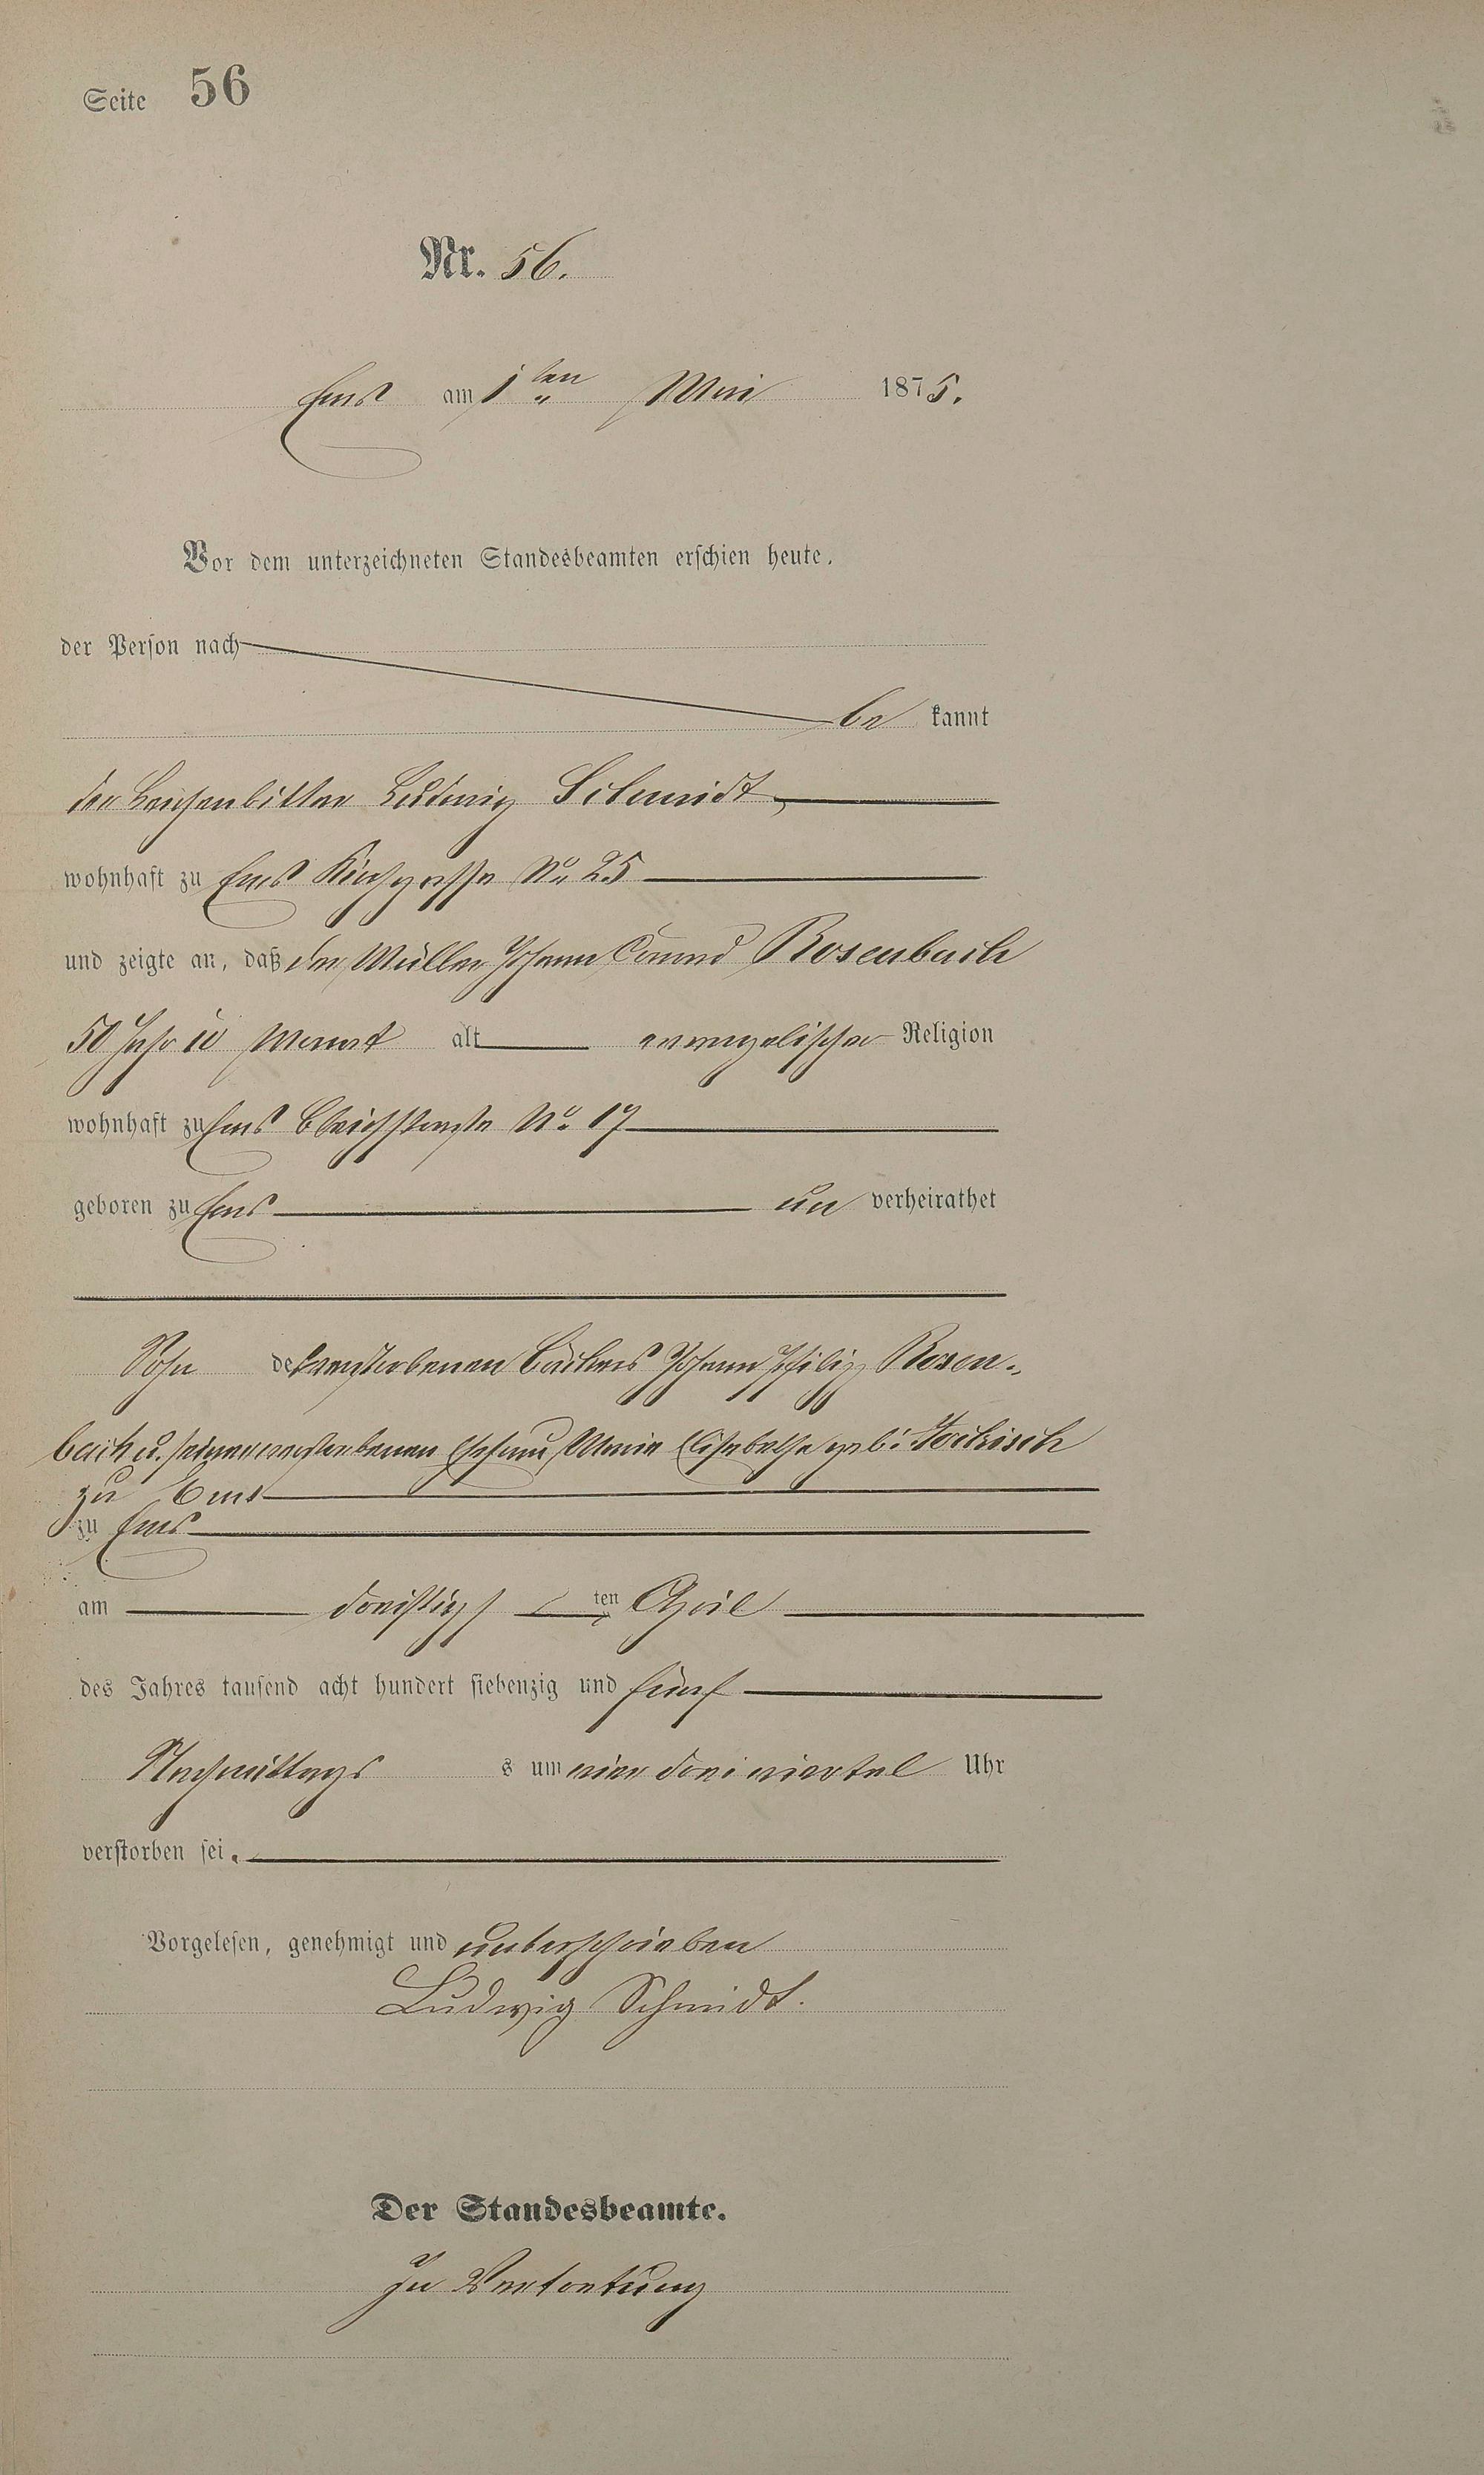 Seite 56
Nr. 56.
Ems am 1ten Mai 1875.
Vor dem unterzeichneten Standesbeamten erschien heute,
der Person nach
be kannt
der Leichenbitter Ludwig Schmidt,
wohnhaft zu Ems Kirchgasse No 25
und zeigte an, daß der Müller Johann Conrad Rosenbach
50 Jahr 10 Monat alt evangelischer Religion
wohnhaft zu Ems Bleichstraße No 17
geboren zu Ems un verheirathet
Sohn des verstorbenen Bäckers Johann Philipp Rosen-
bach u. seiner verstorbenen Ehefrau Marie Elisabethe geb:
zu Ems
zu Ems
am dreißigs ten April
des Jahres tausend acht hundert siebenzig und fünf
Nachmittags s um vier drei viertel Uhr
verstorben sei.
Vorgelesen, genehmigt und unterschrieben
Ludwig Schmidt.
Der Standesbeamte.
In Vertretung